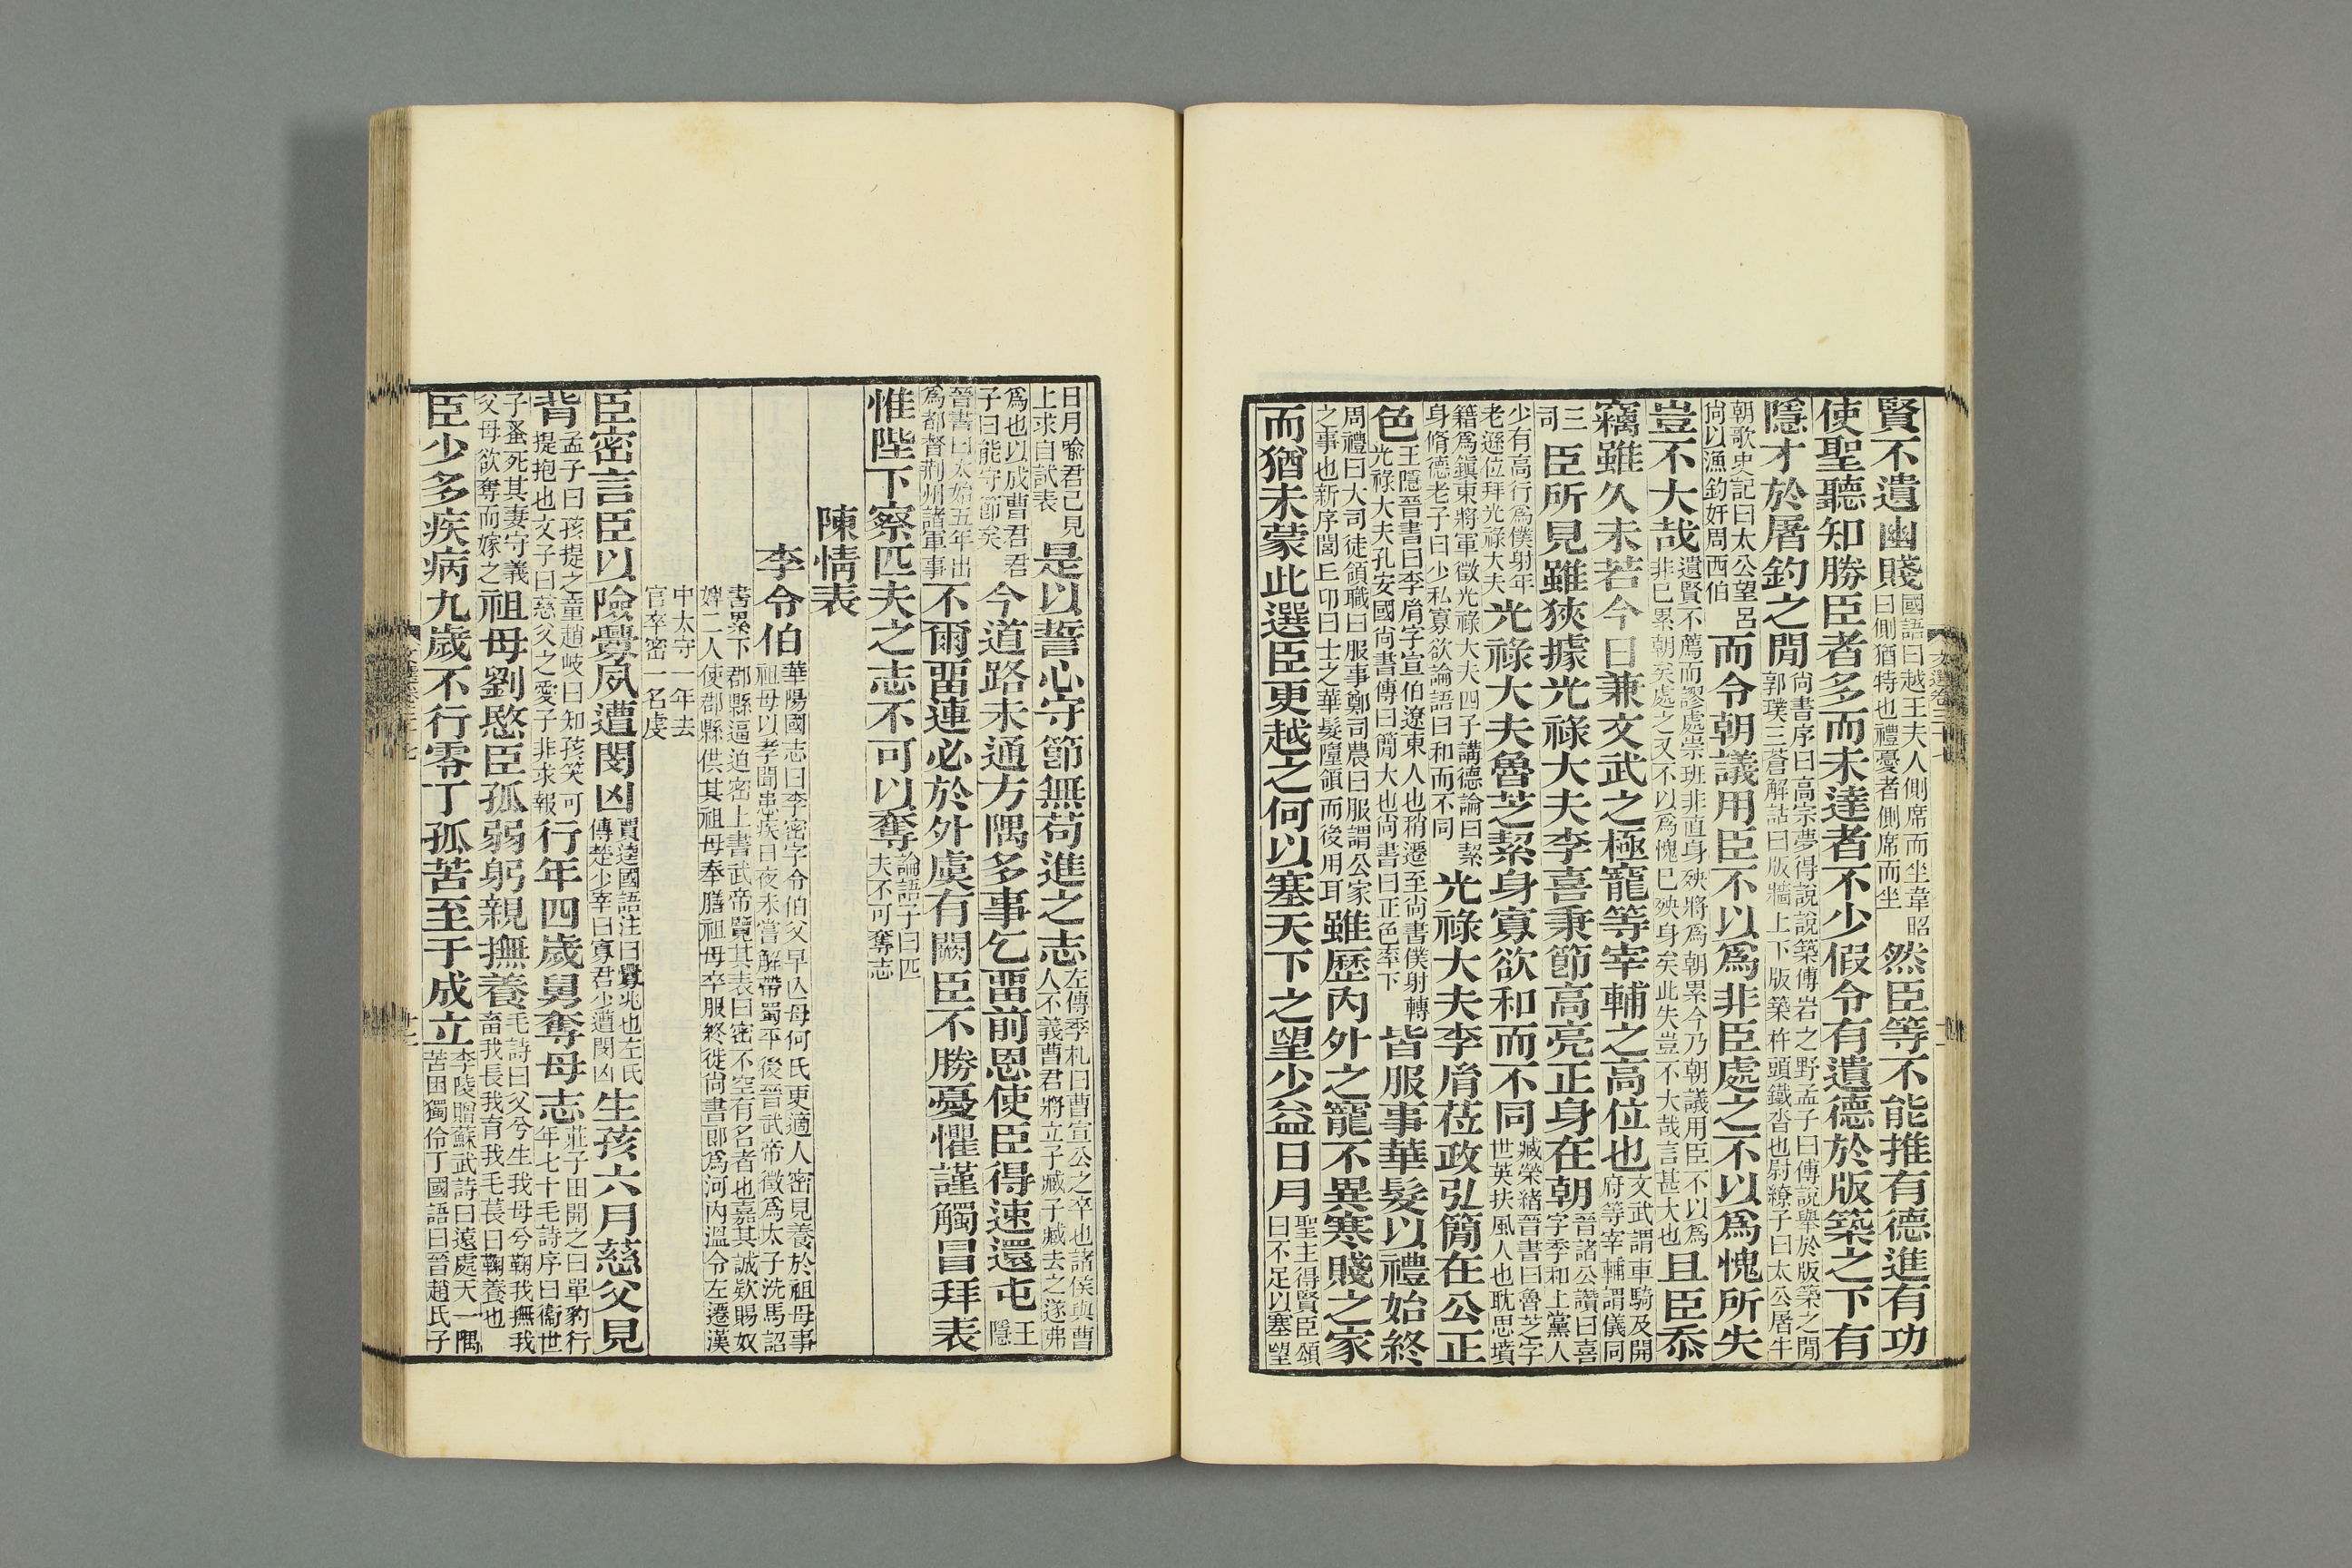 賢不遺幽賤國語曰越王夫人側席而坐韋昭曰側猶特也禮憂者側席而坐然臣等不能推有德進有功
使聖聽知勝臣者多而未達者不少假令有遺德於版築之下有
隱才於屠釣之閒尚書序曰高宗夢得說說築傅岩之野孟子曰傅說舉於版築之閒郭璞三蒼解詁曰版牆上下版築杵頭鐵沓也尉繚子曰太公屠牛
朝歌史記曰太公望呂尚以漁釣奸周西伯而令朝議用臣不以爲非臣處之不以爲愧所失
豈不大哉遺賢不薦而謬處崇班非直身殃將爲朝累今乃朝議用臣不以爲非已累朝矣處之又不以爲愧已殃身矣此失豈不大哉言甚大也且臣忝
竊雖久未若今日兼文武之極寵等宰輔之高位也文武謂車騎及開府等宰輔謂儀同
三司臣所見雖狹據光祿大夫李喜秉節高亮正身在朝晉諸公讚曰喜字季和上黨人
少有高行爲僕射年老遜位拜光祿大夫光祿大夫魯芝絜身寡欲和而不同臧榮緒晉書曰魯芝字世英扶風人也耽思墳
籍爲鎭東將軍徵光祿大夫四子講德論曰絜身脩德老子曰少私寡欲論語曰和而不同光祿大夫李胤莅政弘簡在公正
色王隱晉書曰李胤字宣伯遼東人也稍遷至尚書僕射轉光祿大夫孔安國尚書傳曰簡大也尚書曰正色率下皆服事華髮以禮始終
周禮曰大司徒頒職曰服事鄭司農曰服謂公家之事也新序閭丘卬曰士之華髮墮領而後用耳雖歷內外之寵不異寒賤之家
而猶未蒙此選臣更越之何以塞天下之望少益日月聖主得賢臣頌曰不足以塞望
日月喻君已見上求自試表是以誓心守節無苟進之志左傳季札曰曹宣公之卒也諸侯與曹人不義曹君將立子臧子臧去之遂弗
爲也以成曹君君子曰能守節矣今道路未通方隅多事乞畱前恩使臣得速還屯王隱
晉書曰太始五年出爲都督荊州諸軍事不爾畱連必於外虞有闕臣不勝憂懼謹觸冒拜表
惟陛下察匹夫之志不可以奪論語子曰匹夫不可奪志
陳情表
李令伯華陽國志曰李密字令伯父早亾母何氏更適人密見養於祖母事祖母以孝聞患疾日夜未嘗解帶蜀平後晉武帝徵爲太子洗馬詔
書累下郡縣逼迫密上書武帝覽其表曰密不空有名者也嘉其誠欵賜奴婢二人使郡縣供其祖母奉膳祖母卒服終徙尚書郎爲河內溫令左遷漢
中太守一年去官卒密一名虔
臣密言臣以險釁夙遭閔凶賈逵國語注曰釁兆也左氏傳楚少宰曰寡君少遭閔凶生孩六月慈父見
背孟子曰孩提之童趙岐曰知孩笑可提抱也文子曰慈父之愛子非求報行年四歲舅奪母志莊子田開之曰單豹行年七十毛詩序曰衞世
子蚤死其妻守義父母欲奪而嫁之祖母劉愍臣孤弱躬親撫養毛詩曰父兮生我母兮鞠我撫我畜我長我育我毛萇曰鞠養也
臣少多疾病九歲不行零丁孤苦至于成立李陵贈蘇武詩曰遠處天一隅苦困獨伶丁國語曰晉趙氏子